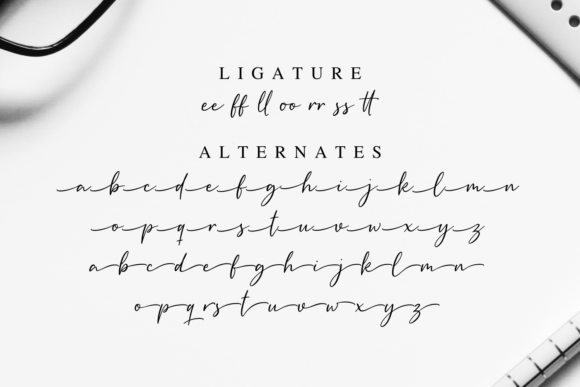 LIGATURE
ee ff ll oo rr ss tt
ALTERNATES
a b c d e f g h i j k l m n
o p q r s t u v w x y z
a b c d e f g h i j k l m n
o p q r s t u v w x y z